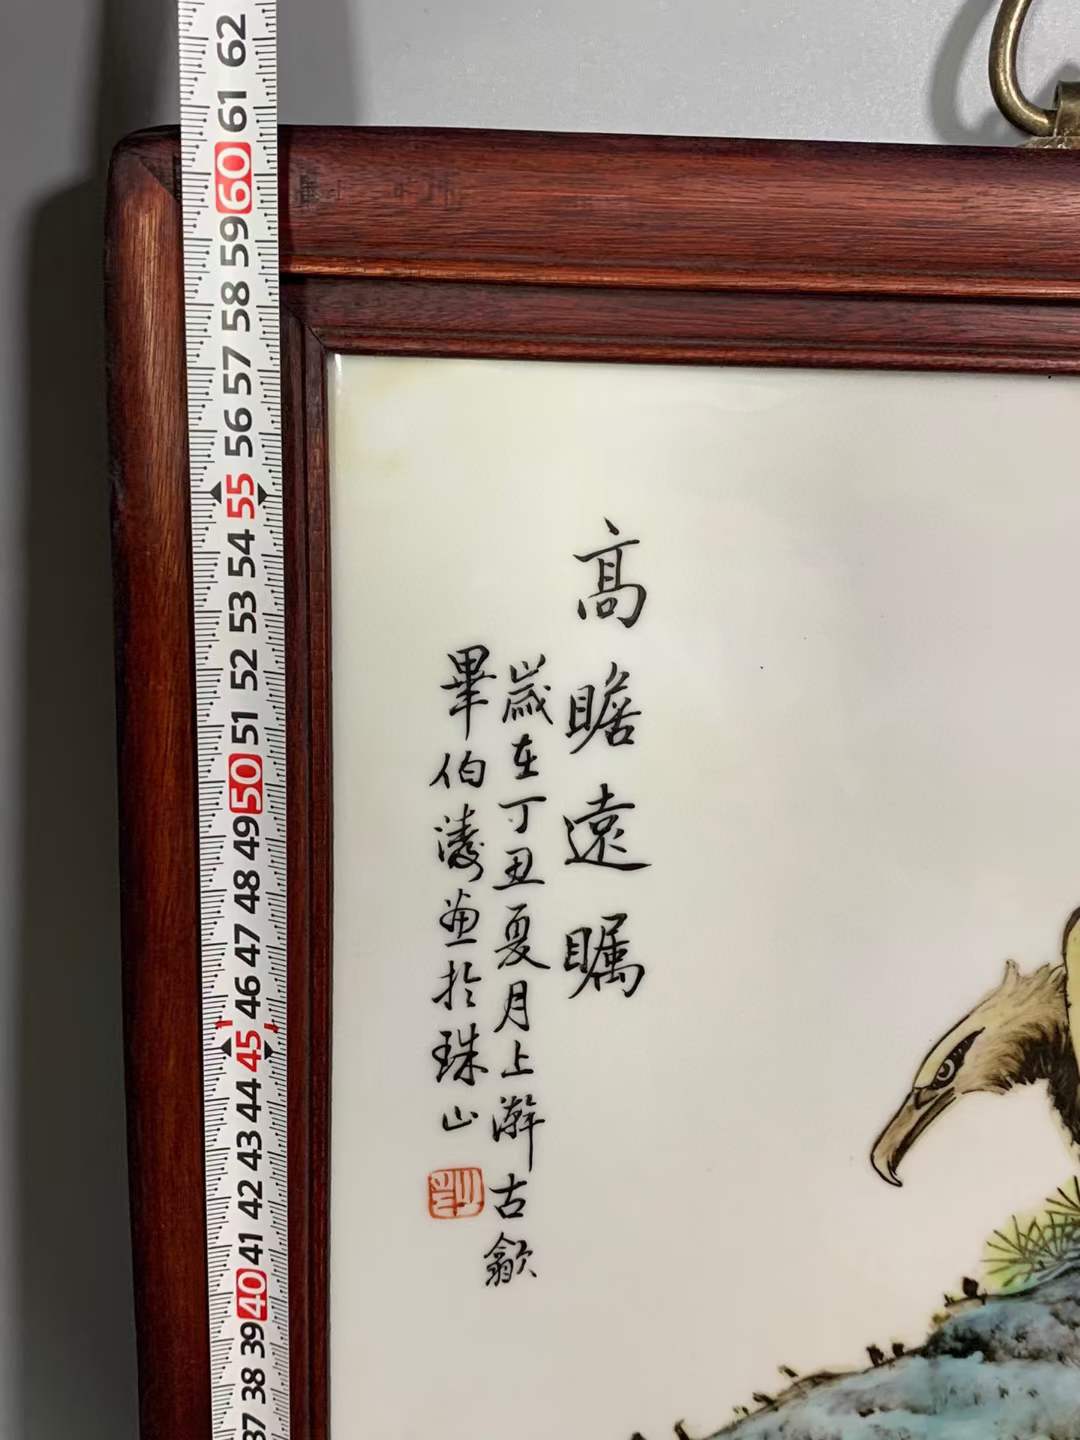 高瞻遠矚
歲在丁丑夏月上澣古歙
畢伯濤画於珠山
62
61
60
59
58
57
56
55
54
53
52
51
50
49
48
47
46
45
44
43
42
41
40
39
38
37